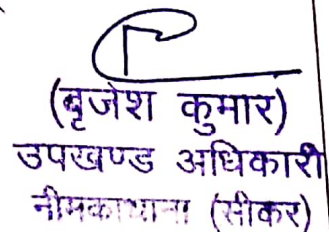 (बृजेश कुमार)
उपखण्ड अधिकारी
नीमकाथाना (सीकर)